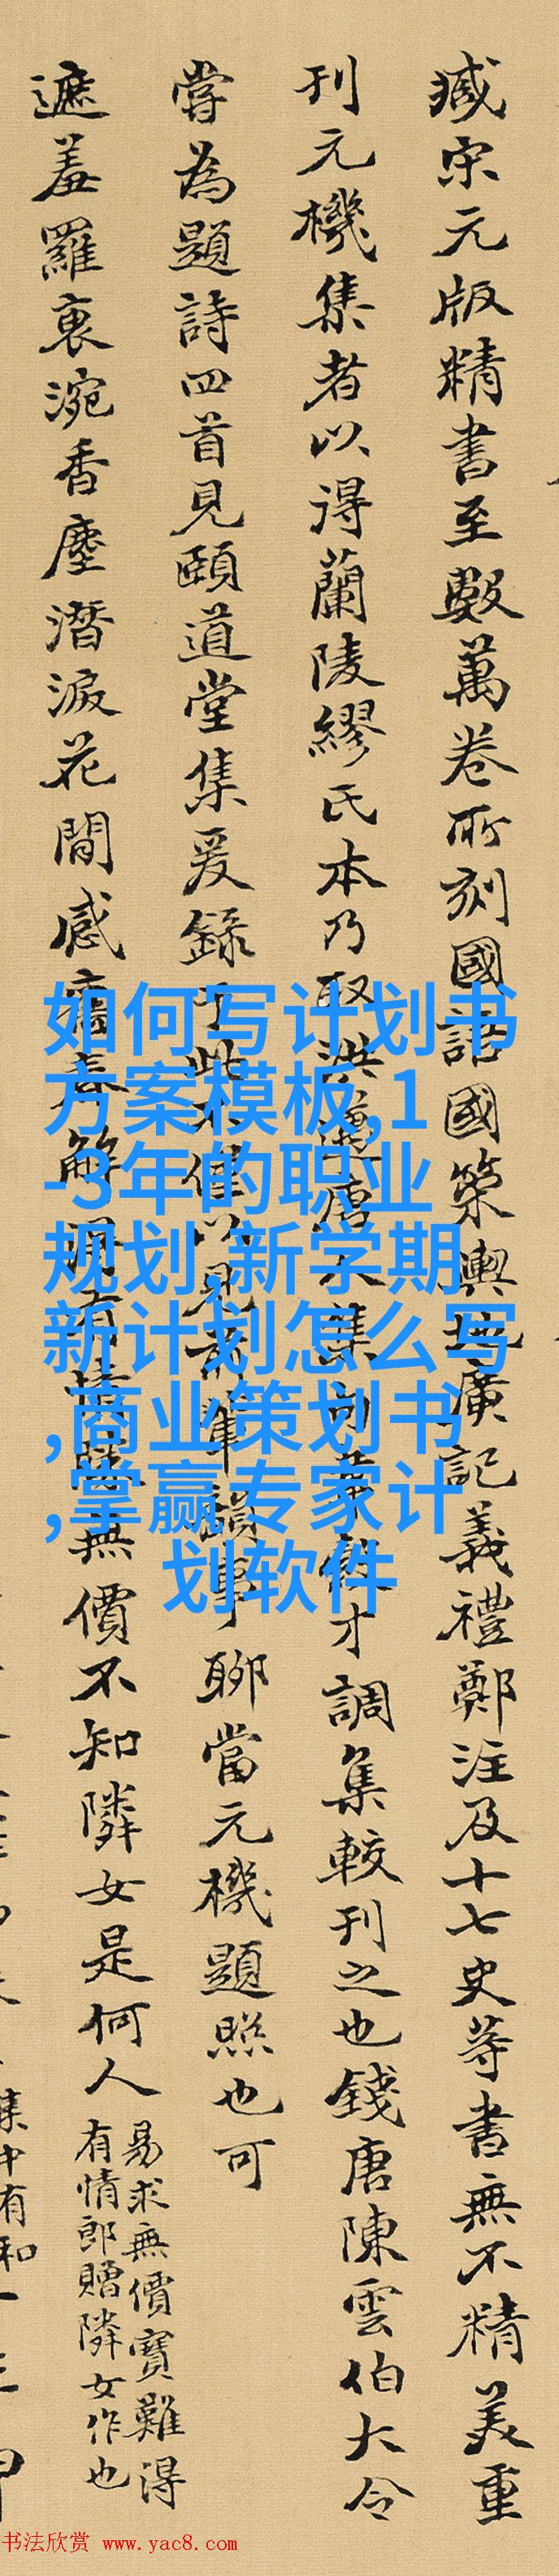 臧宋元版精書至數萬卷所刻國語國策輿地廣記義禮鄭注及十七史等書無不精美重
刊元機集者以得蘭陵繆氏本乃取洪 唐人集 才調集較刊之也錢唐陳雲伯大令
嘗為題詩四首見頤道堂集爰錄于此不僅以見前輩韻事聊當元機題照也可
遮羞羅裹涴香塵潛淚花間感舊春解 有情 無價不知隣女是何人
易求無價寶難得
有情郎贈隣女作也
集中有和一
如何写计划书
方案模板,1
-3年的职业
规划,新学期
新计划怎么写
,商业策划书
,掌赢专家计
划软件
书法欣赏 www.yac8.com